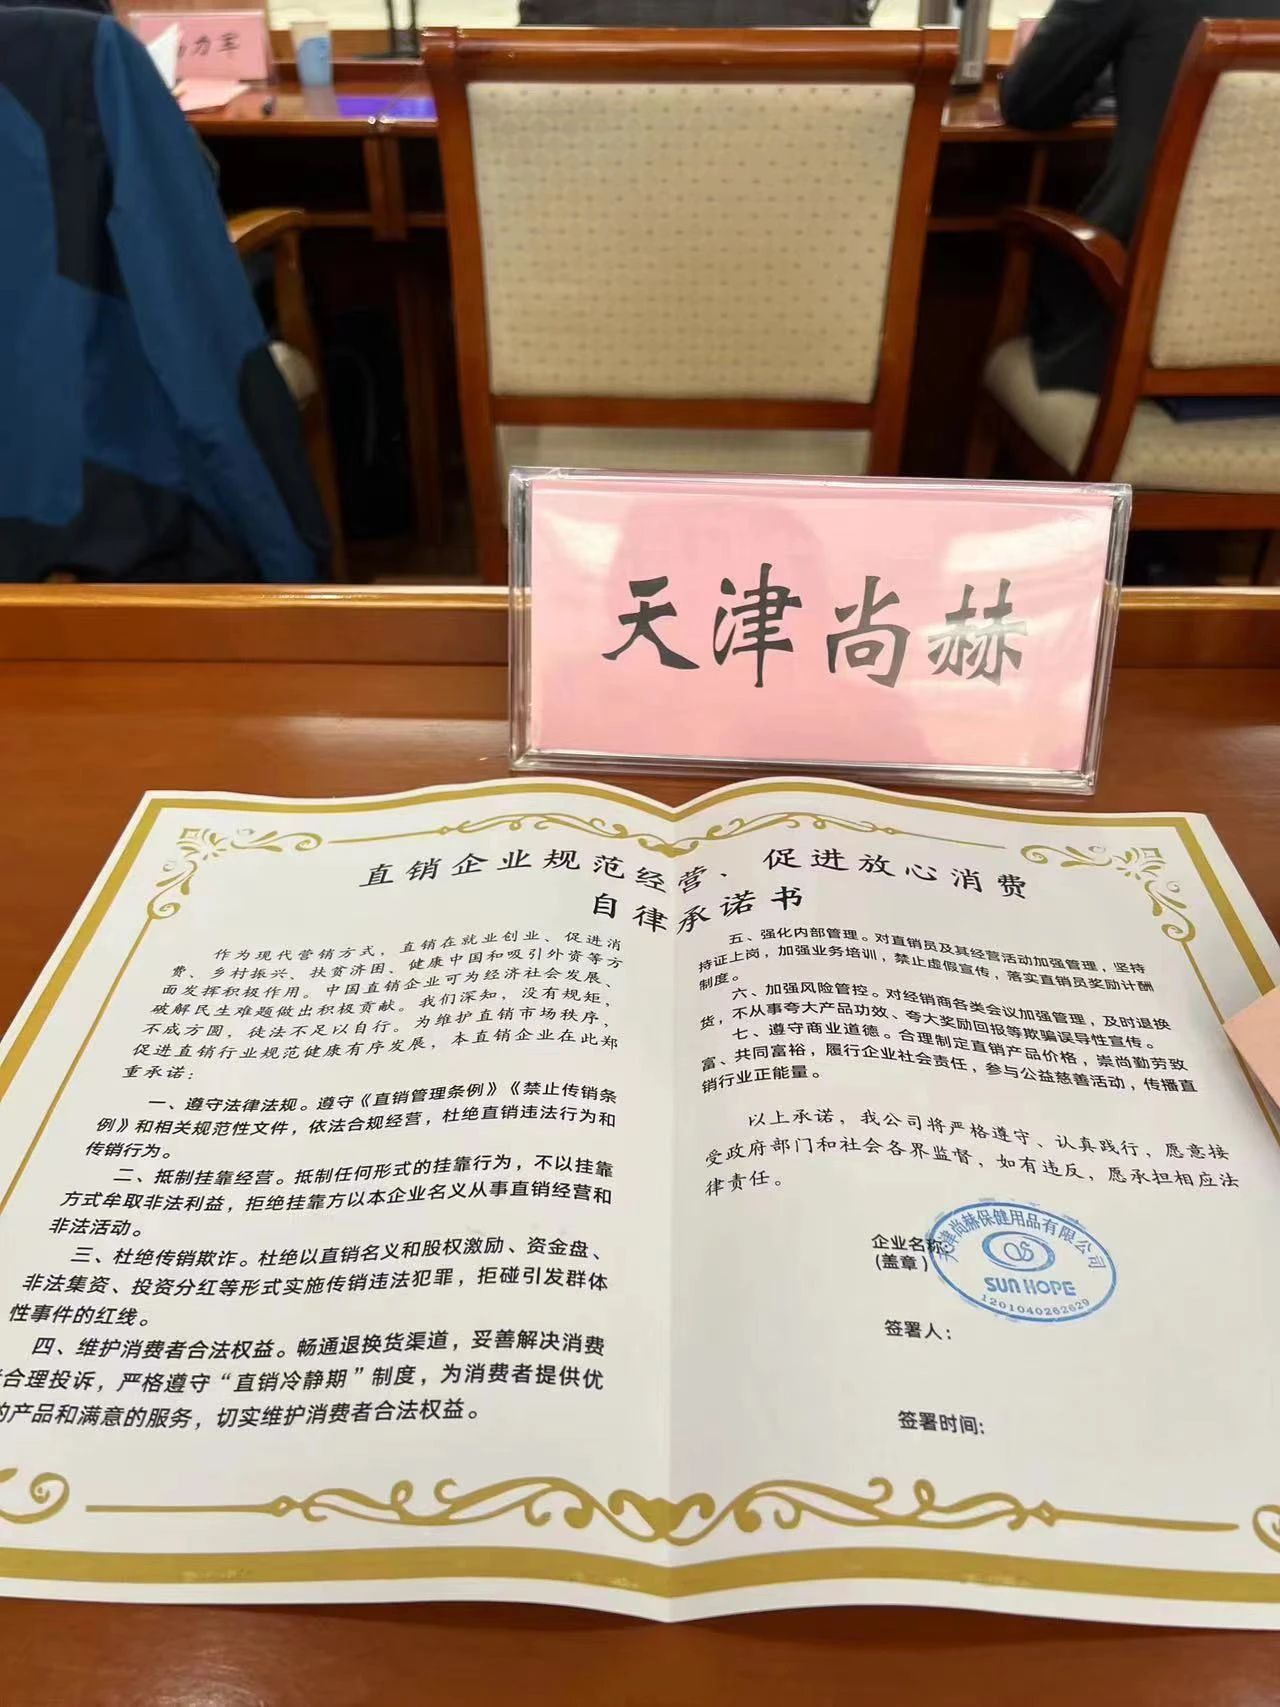 力军
天津尚赫
直销企业规范经营、促进放心消费
自律承诺书
作为现代营销方式，直销在就业创业、促进消
费、乡村振兴、扶贫济困、健康中国和吸引外资等方
面发挥积极作用。中国直销企业可为经济社会发展、
破解民生难题做出积极贡献。我们深知，没有规矩，
不成方圆，徒法不足以自行。为维护直销市场秩序，
促进直销行业规范健康有序发展，本直销企业在此郑
重承诺：
一、遵守法律法规。遵守《直销管理条例》《禁止传销条
例》和相关规范性文件，依法合规经营，杜绝直销违法行为和
传销行为。
二、抵制挂靠经营。抵制任何形式的挂靠行为，不以挂靠
方式牟取非法利益，拒绝挂靠方以本企业名义从事直销经营和
非法活动。
三、杜绝传销欺诈。杜绝以直销名义和股权激励、资金盘、
非法集资、投资分红等形式实施传销违法犯罪，拒碰引发群体
性事件的红线。
四、维护消费者合法权益。畅通退换货渠道，妥善解决消费
合理投诉，严格遵守“直销冷静期”制度，为消费者提供优
的产品和满意的服务，切实维护消费者合法权益。
五、强化内部管理。对直销员及其经营活动加强管理，坚持
持证上岗，加强业务培训，禁止虚假宣传，落实直销员奖励计酬
制度。
六、加强风险管控。对经销商各类会议加强管理，及时退换
货，不从事夸大产品功效、夸大奖励回报等欺骗误导性宣传。
七、遵守商业道德。合理制定直销产品价格，崇尚勤劳致
富、共同富裕，履行企业社会责任，参与公益慈善活动，传播直
销行业正能量。
以上承诺，我公司将严格遵守、认真践行，愿意接
受政府部门和社会各界监督，如有违反，愿承担相应法
律责任。
企业名称：
（盖章）
天津尚赫保健用品有限公司
SUN HOPE
1201040262629
签署人：
签署时间：